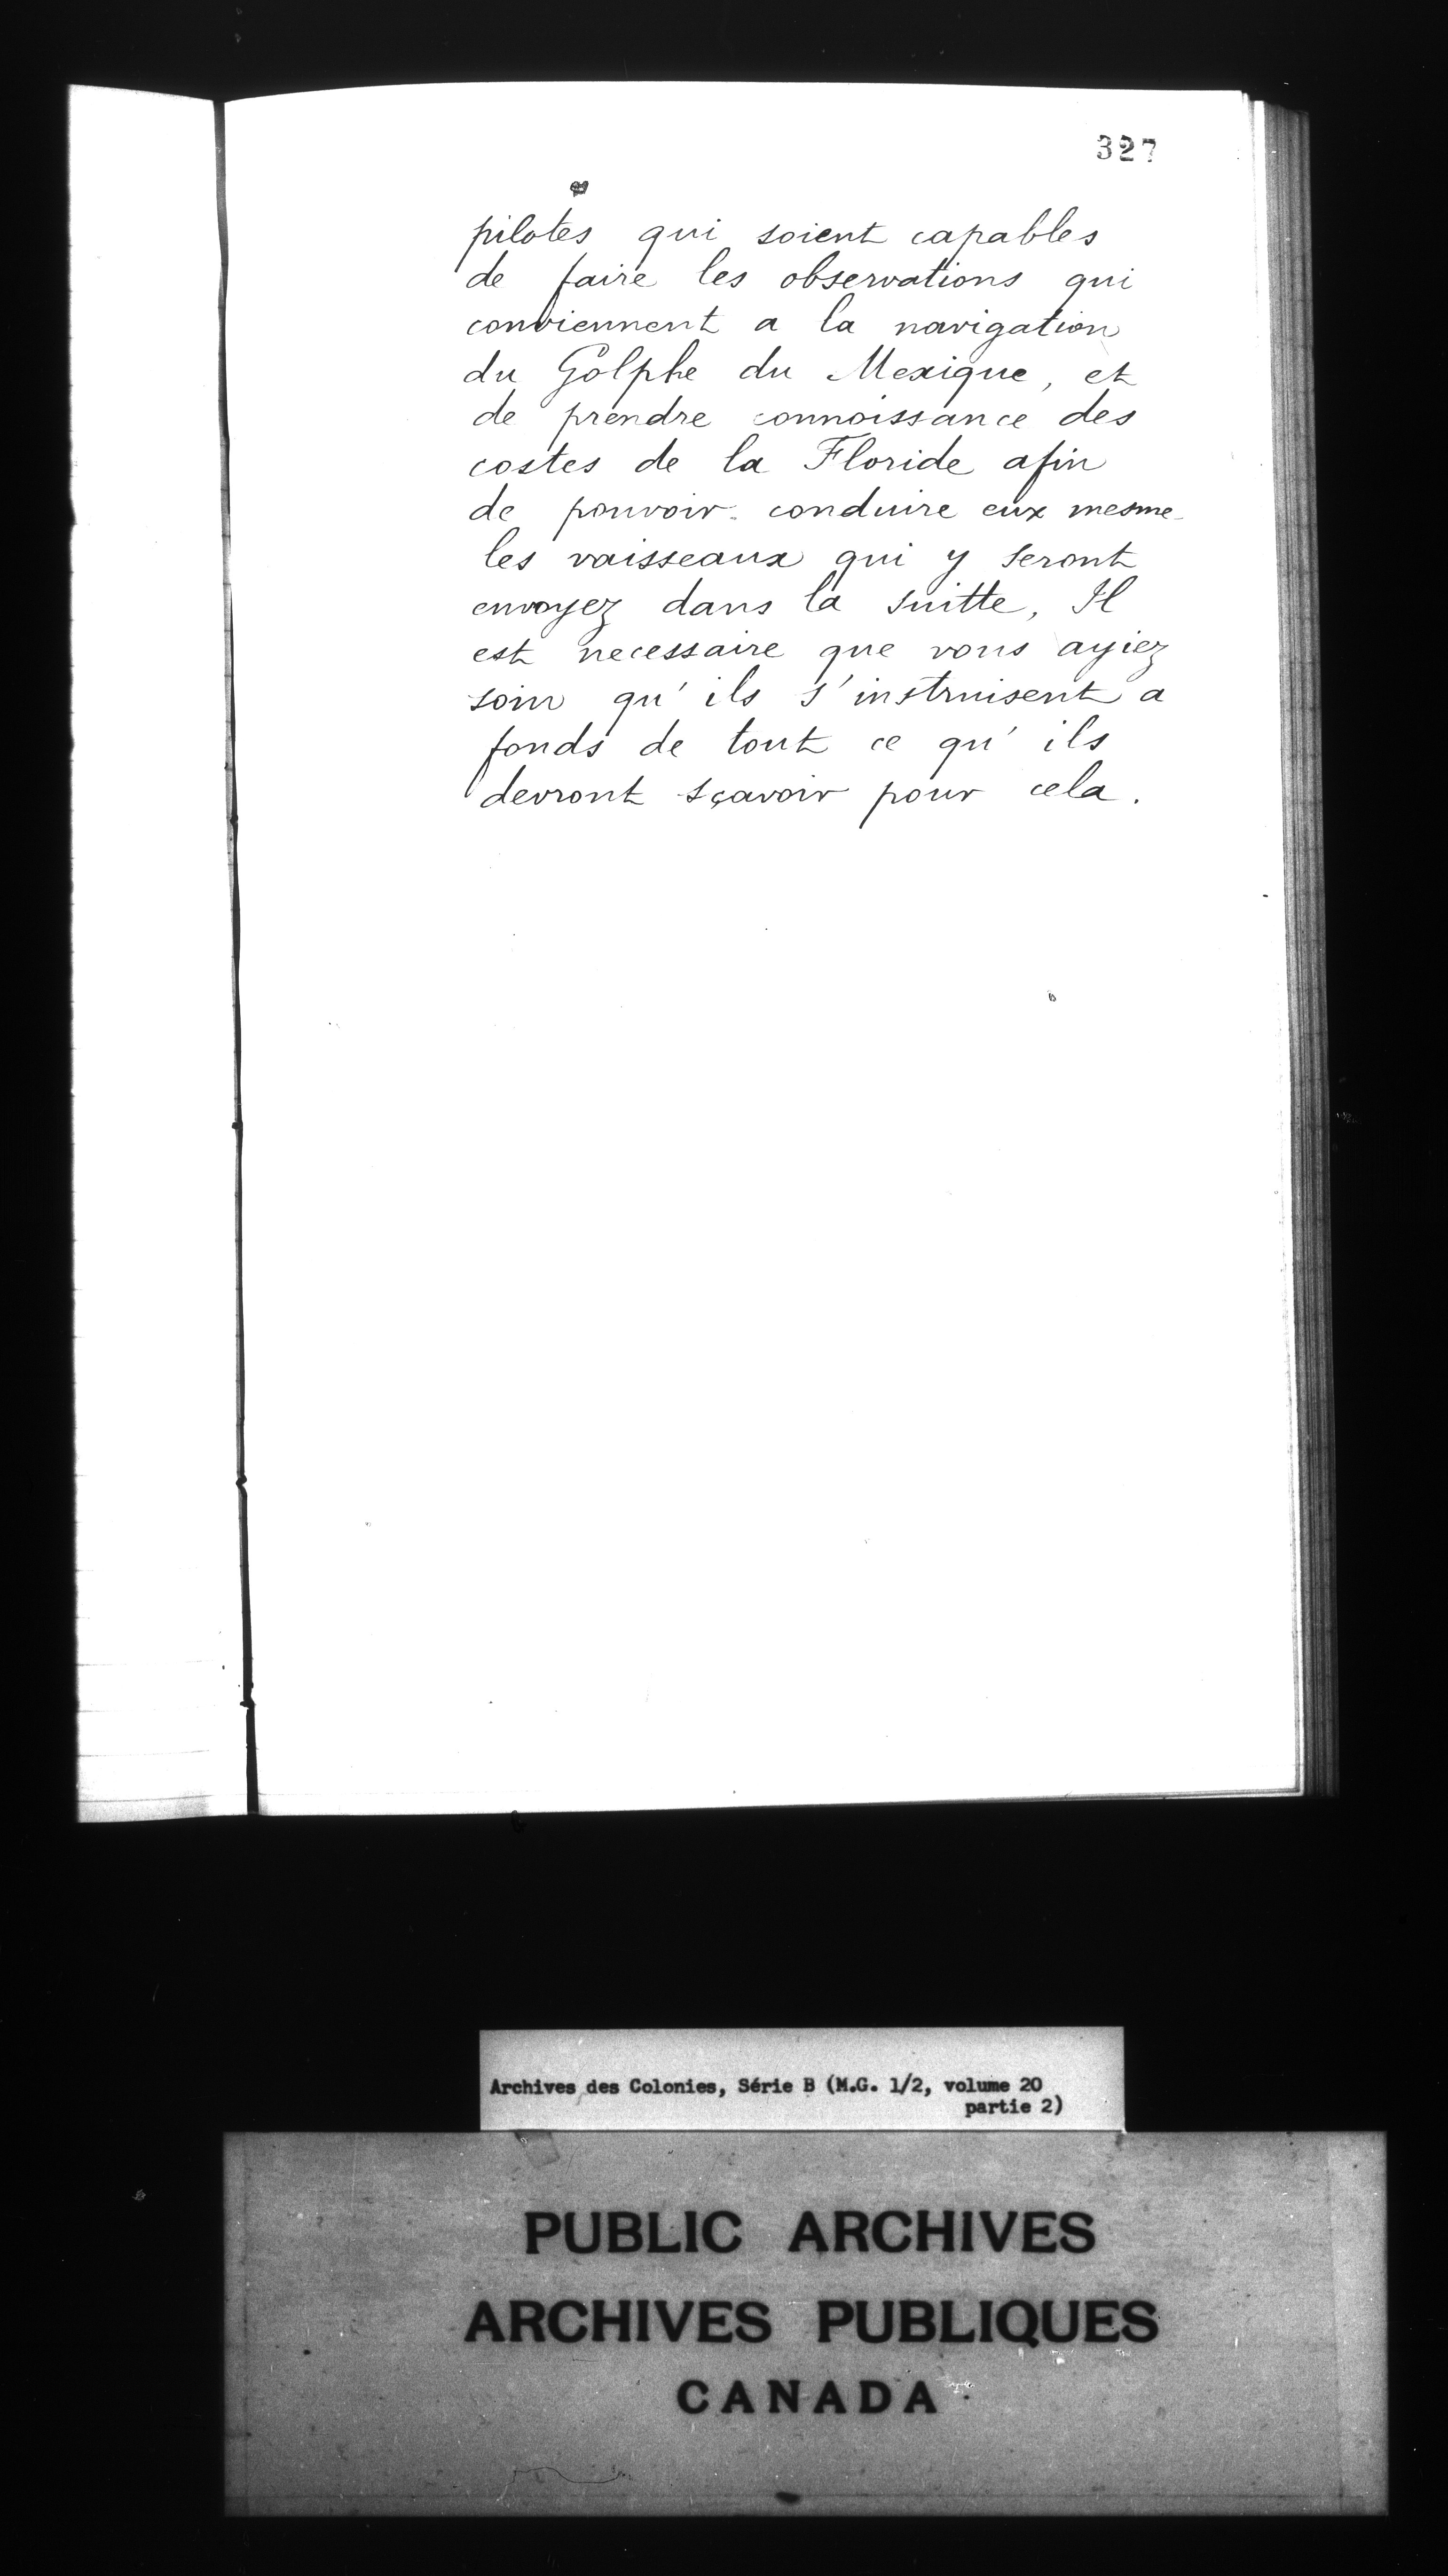 327
pilotes qui soient capables
de faire les observations qui
conviennent a la navigation
du Golphe du Mexique, et
de prendre connoissance des
costes de la Floride afin
de pouvoir conduire eux mesme
les vaisseaux qui y seront
envoyez dans la suitte, Il
est necessaire que vous ayiez
soin qu'ils s'instruisent a
fonds de tout ce qu'ils
devront sçavoir pour cela.
Archives des Colonies, Série B (M.G. 1/2, volume 20
partie 2)
PUBLIC ARCHIVES
ARCHIVES PUBLIQUES
CANADA